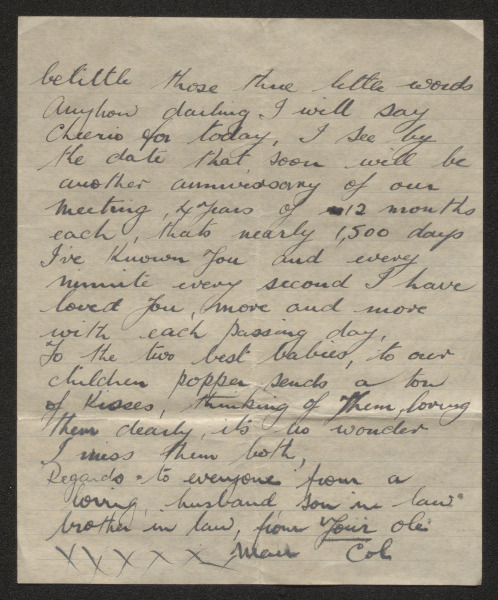 belittle those three little words
Anyhow darling. I will say
Cheerio for today, I see by
the date that soon will be
another anniversary of our
meeting, 4 years of 12 months
each, thats nearly 1,500 days
I've Known You and every
minute every second I have
loved You, more and more
with each passing day,
To the two best babies, to our
children popper sends a ton
of Kisses, thinking of Them, loving
them dearly, it's no wonder
I miss them both,
Regards to everyone from a
loving husband son in law
brother in law, from Your ole
X X X X X Man Col